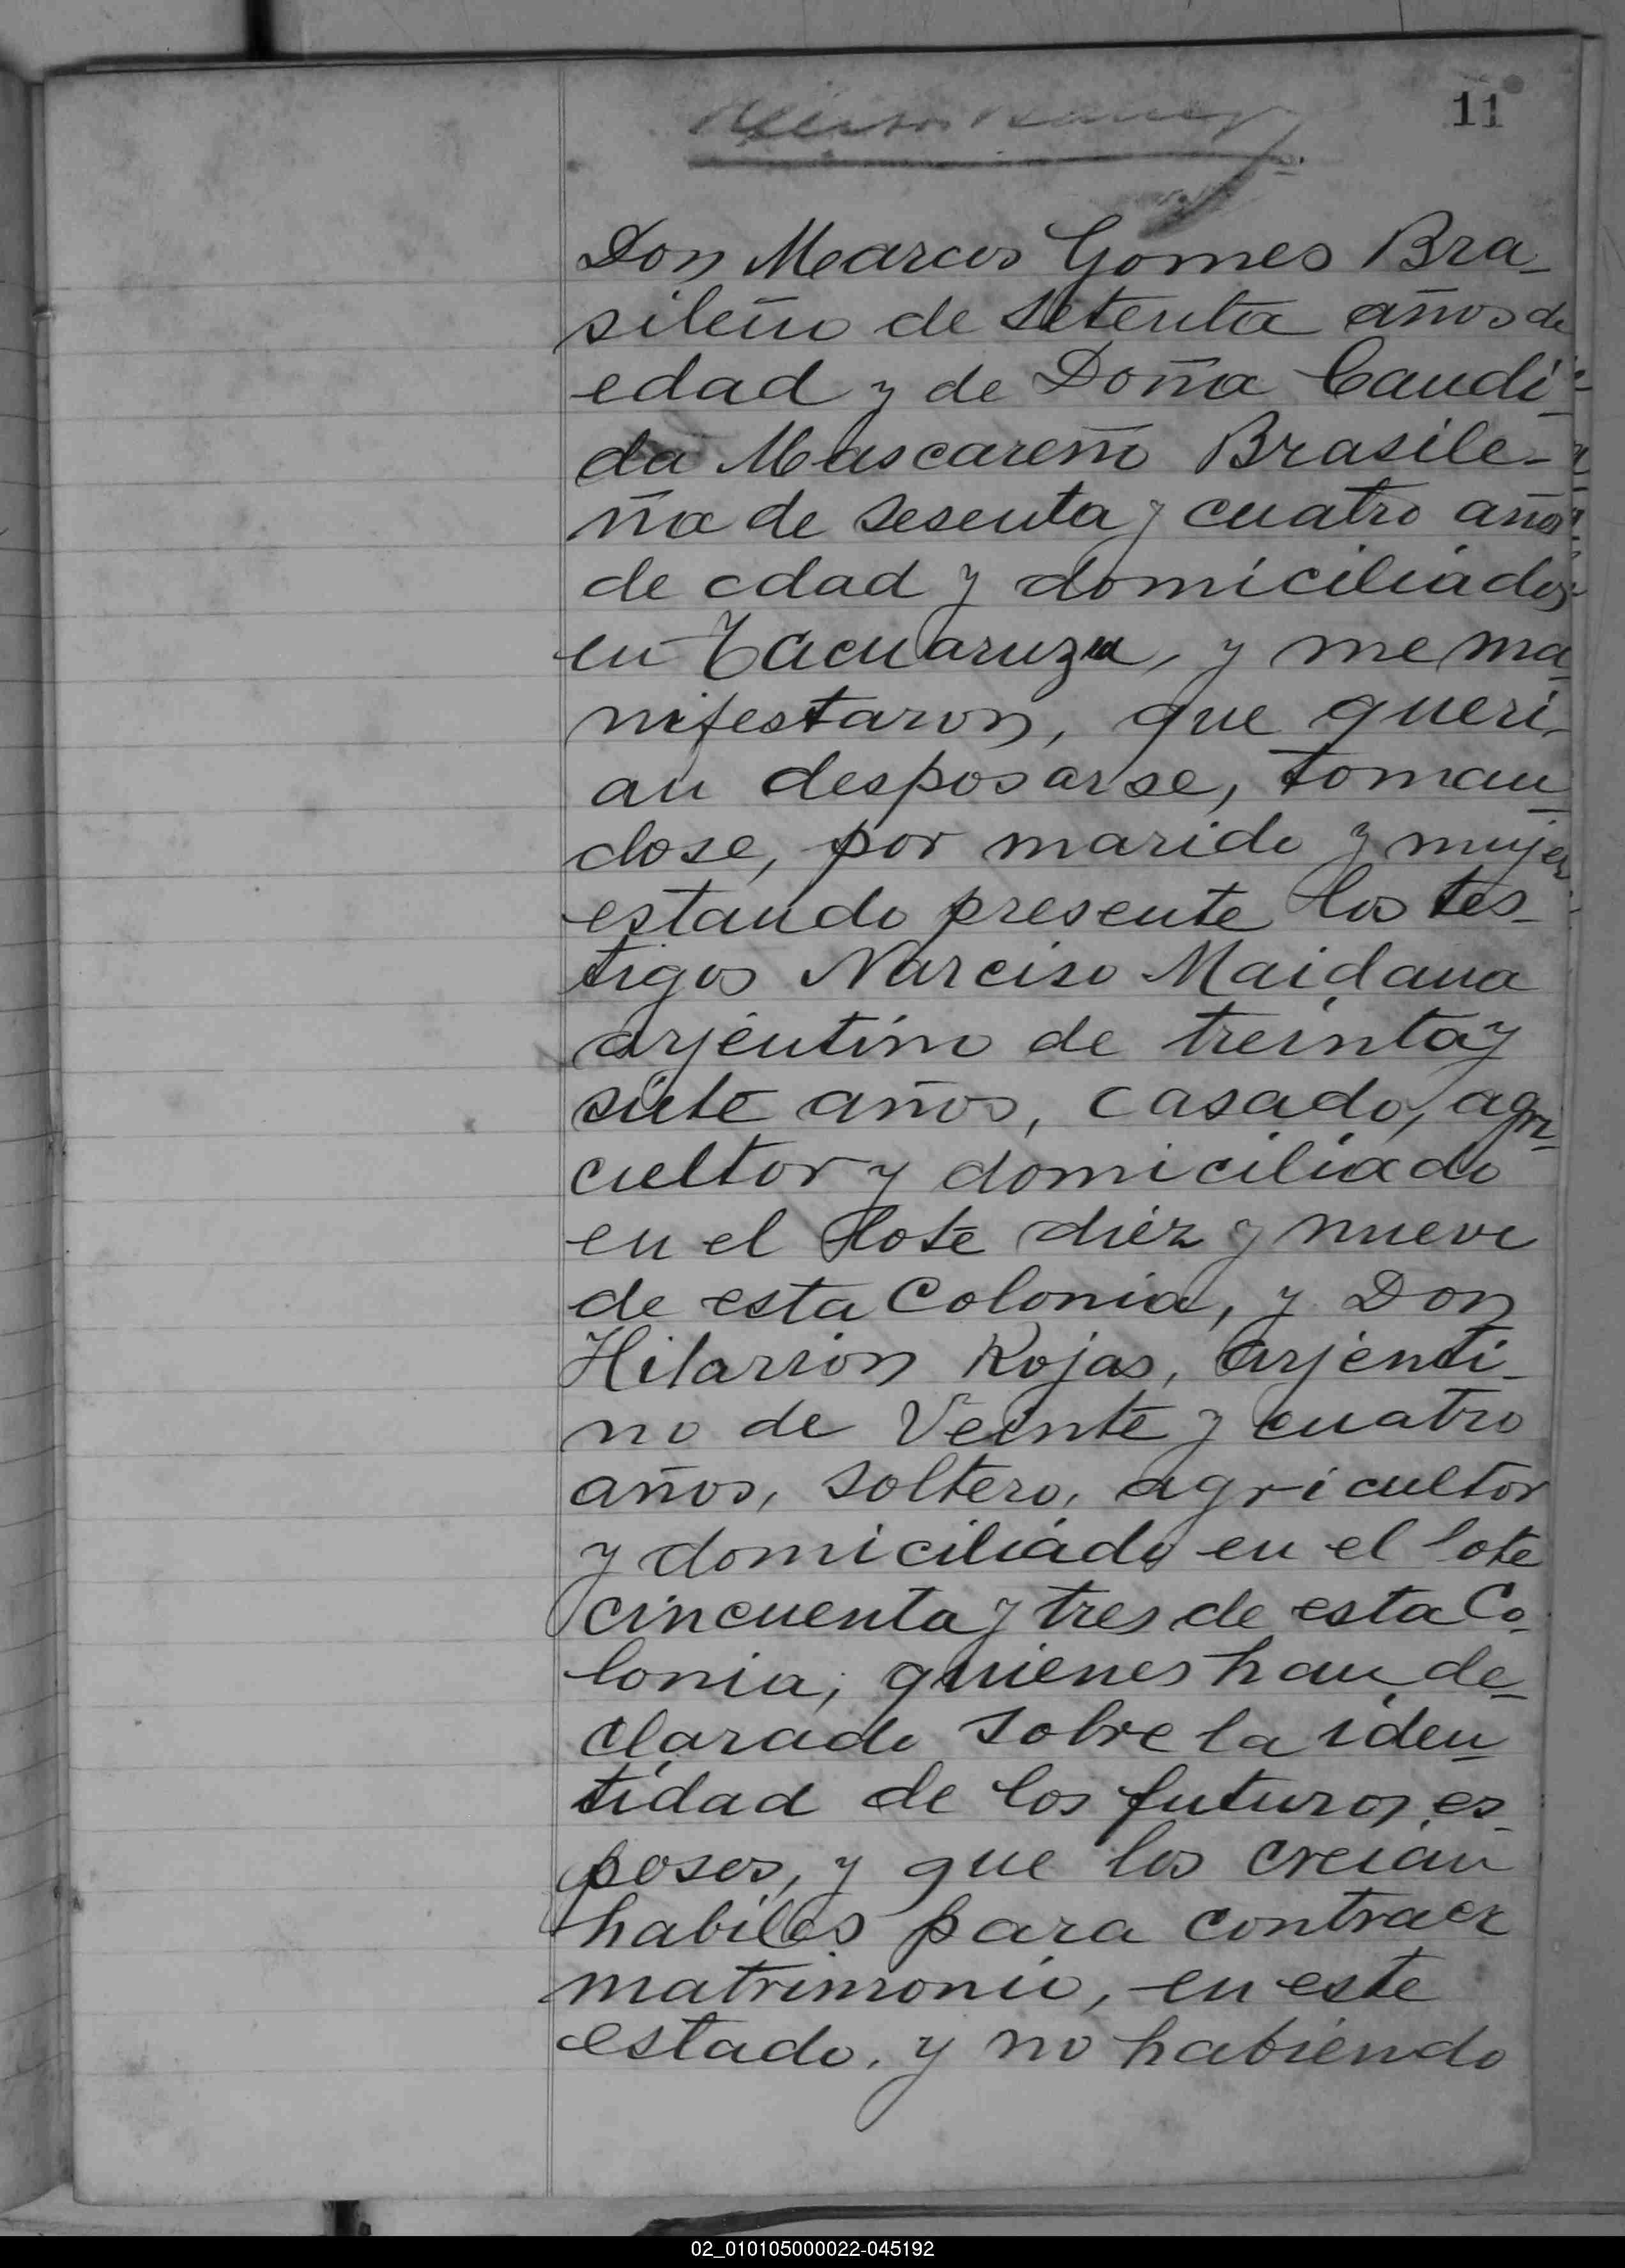 11
Don Marcos Gomes Bra-
sileño de setenta años de
edad y de Doña Candi-
da Mascareño Brasile-
ña de sesenta y cuatro años
de edad y domiciliados
en Tacuaruzu, y me ma-
nifestaron, que queri-
an desposarse, toman-
dose, por marido y mujer
estando presente los tes-
tigos Narciso Maidana
arjentino de treinta y
siete años, casado, agri-
cultor y domiciliado
en el lote diez y nueve
de esta Colonia, y Don
Hilarion Rojas, arjenti-
no de Veinte y cuatro
años, soltero, agricultor
y domiciliado en el lote
cincuenta y tres de esta Co-
lonia, quienes han de-
clarado sobre la iden-
tidad de los futuros es-
posos, y que los creian
habiles para contraer
matrimonio, en este
estado, y no habiendo
02_010105000022-045192